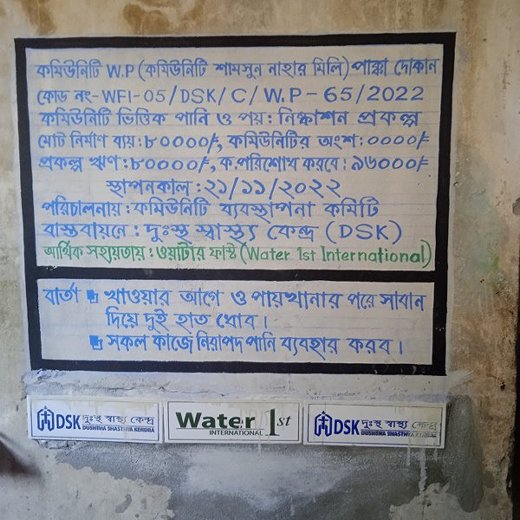 কমিউনিটি W.P (কমিউনিটি শামসুন নাহার মিলি) পাক্কা দোকান
কোড নং-WFI-05/DSK/C/W.P-65/2022
কমিউনিটি ভিত্তিক পানি ও পয়: নিষ্কাশন প্রকল্প
মোট নির্মাণ ব্যয়:৮০০০০/-, কমিউনিটির অংশ:০০০০/-
প্রকল্প ঋণ:৮০০০০/-, ক.পরিশোধ করবে:৯৬০০০/-
স্থাপনকাল:২১/১১/২০২২
পরিচালনায়: কমিউনিটি ব্যবস্থাপনা কমিটি
বাস্তবায়নে: দুঃস্থ স্বাস্থ্য কেন্দ্র (DSK)
আর্থিক সহায়তায়: ওয়াটার ফার্স্ট (Water 1st International)
বার্তা খাওয়ার আগে ও পায়খানার পরে সাবান
দিয়ে দুই হাত ধোব।
সকল কাজে নিরাপদ পানি ব্যবহার করব।
DSK দুঃস্থ স্বাস্থ্য কেন্দ্র
DUSHTHA SHASTHYA KENDRA
Water 1st
INTERNATIONAL
DSK দুঃস্থ স্বাস্থ্য কেন্দ্র
DUSHTHA SHASTHYA KENDRA